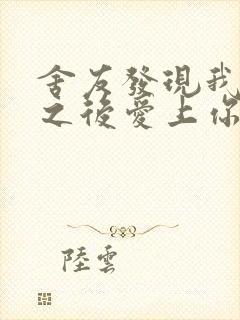 舍友發現我
之後愛上你
陸雲